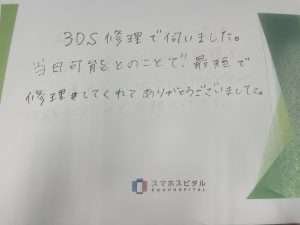 3DS修理で伺いました。
当日可能とのことで、最短で
修理をしてくれてありがとうございました。
スマホスピタル
SMAHOSPITAL